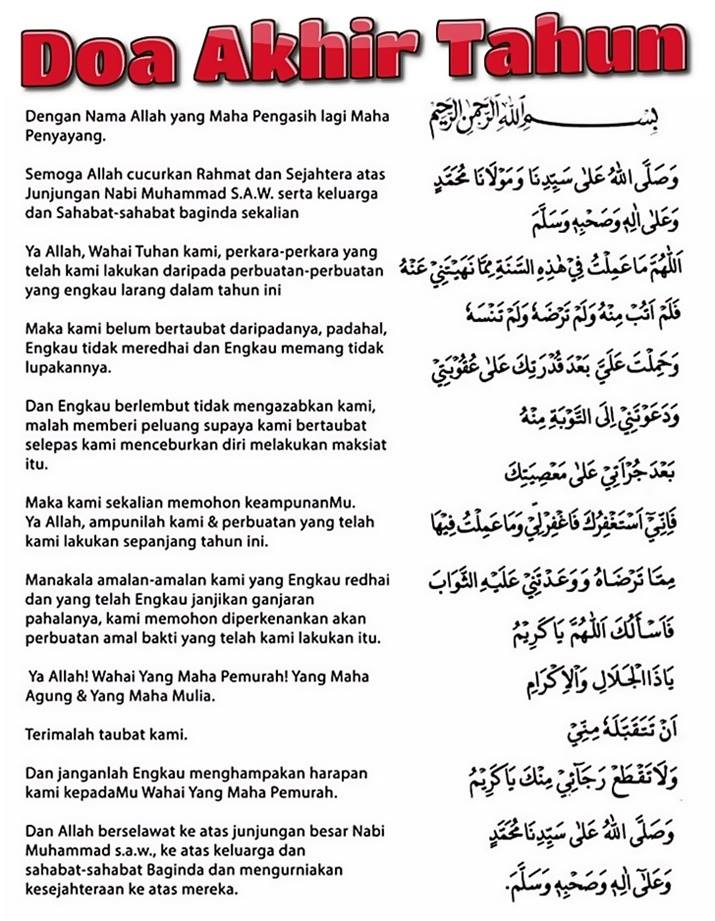 Doa Akhir Tahun
Dengan Nama Allah yang Maha Pengasih lagi Maha
Penyayang.
Semoga Allah cucurkan Rahmat dan Sejahtera atas
Junjungan Nabi Muhammad S.A.W. serta keluarga
dan Sahabat-sahabat baginda sekalian
Ya Allah, Wahai Tuhan kami, perkara-perkara yang
telah kami lakukan daripada perbuatan-perbuatan
yang engkau larang dalam tahun ini
Maka kami belum bertaubat daripadanya, padahal,
Engkau tidak meredhai dan Engkau memang tidak
lupakannya.
Dan Engkau berlembut tidak mengazabkan kami,
malah memberi peluang supaya kami bertaubat
selepas kami menceburkan diri melakukan maksiat
itu.
Maka kami sekalian memohon keampunanMu.
Ya Allah, ampunilah kami & perbuatan yang telah
kami lakukan sepanjang tahun ini.
Manakala amalan-amalan kami yang Engkau redhai
dan yang telah Engkau janjikan ganjaran
pahalanya, kami memohon diperkenankan akan
perbuatan amal bakti yang telah kami lakukan itu.
Ya Allah! Wahai Yang Maha Pemurah! Yang Maha
Agung & Yang Maha Mulia.
Terimalah taubat kami.
Dan janganlah Engkau menghampakan harapan
kami kepadaMu Wahai Yang Maha Pemurah.
Dan Allah berselawat ke atas junjungan besar Nabi
Muhammad s.a.w., ke atas keluarga dan
sahabat-sahabat Baginda dan mengurniakan
kesejahteraan ke atas mereka.
بِسْمِ اللهِ الرَّحْمٰنِ الرَّحِيْمِ
وَصَلَّى اللهُ عَلٰى سَيِّدِنَا وَمَوْلَانَا مُحَمَّدٍ
وَعَلٰى اٰلِهٖ وَصَحْبِهٖ وَسَلَّمَ
اَللّٰهُمَّ مَا عَمِلْتُ فِيْ هٰذِهِ السَّنَةِ مِمَّا نَهَيْتَنِيْ عَنْهُ
فَلَمْ اَتُبْ مِنْهُ وَلَمْ تَرْضَهُ وَلَمْ تَنْسَهُ
وَحَمِلْتَ عَلَيَّ بَعْدَ قُدْرَتِكَ عَلٰى عُقُوْبَتِيْ
وَدَعَوْتَنِيْ اِلَى التَّوْبَةِ مِنْهُ
بَعْدَ جُرْاَتِيْ عَلٰى مَعْصِيَتِكَ
فَاِنِّيْٓ اَسْتَغْفِرُكَ فَاغْفِرْلِيْ وَمَا عَمِلْتُ فِيْهَا
مِمَّا تَرْضَاهُ وَوَعَدْتَنِيْ عَلَيْهِ الثَّوَابَ
فَاَسْأَلُكَ اَللّٰهُمَّ يَا كَرِيْمُ
يَاذَا الْجَلَالِ وَالْاِكْرَامِ
اَنْ تَتَقَبَّلَهُ مِنِّيْ
وَلَا تَقْطَعْ رَجَآئِيْ مِنْكَ يَا كَرِيْمُ
وَصَلَّى اللهُ عَلٰى سَيِّدِنَا مُحَمَّدٍ
وَعَلٰٓى اٰلِهٖ وَصَحْبِهٖ وَسَلَّمَ.